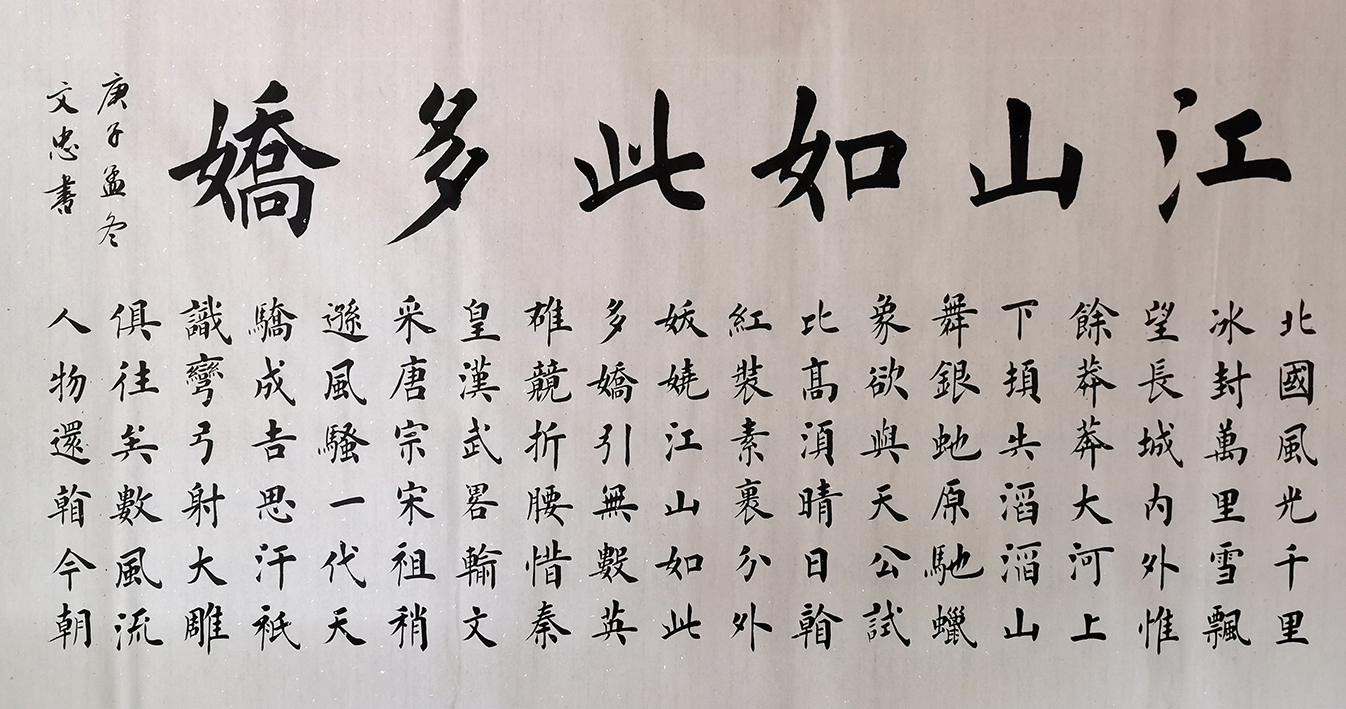 江山如此多嬌
北國風光千里
冰封萬里雪飄
望長城內外惟
餘莽莽大河上
下頓失滔滔山
舞銀虵原馳蠟
象欲與天公試
比高須晴日看
紅裝素裹分外
妖嬈江山如此
多嬌引無數英
雄競折腰惜秦
皇漢武畧輸文
采唐宗宋祖稍
遜風騷一代天
驕成吉思汗祇
識彎弓射大雕
俱往矣數風流
人物還看今朝
庚子孟冬
文忠書